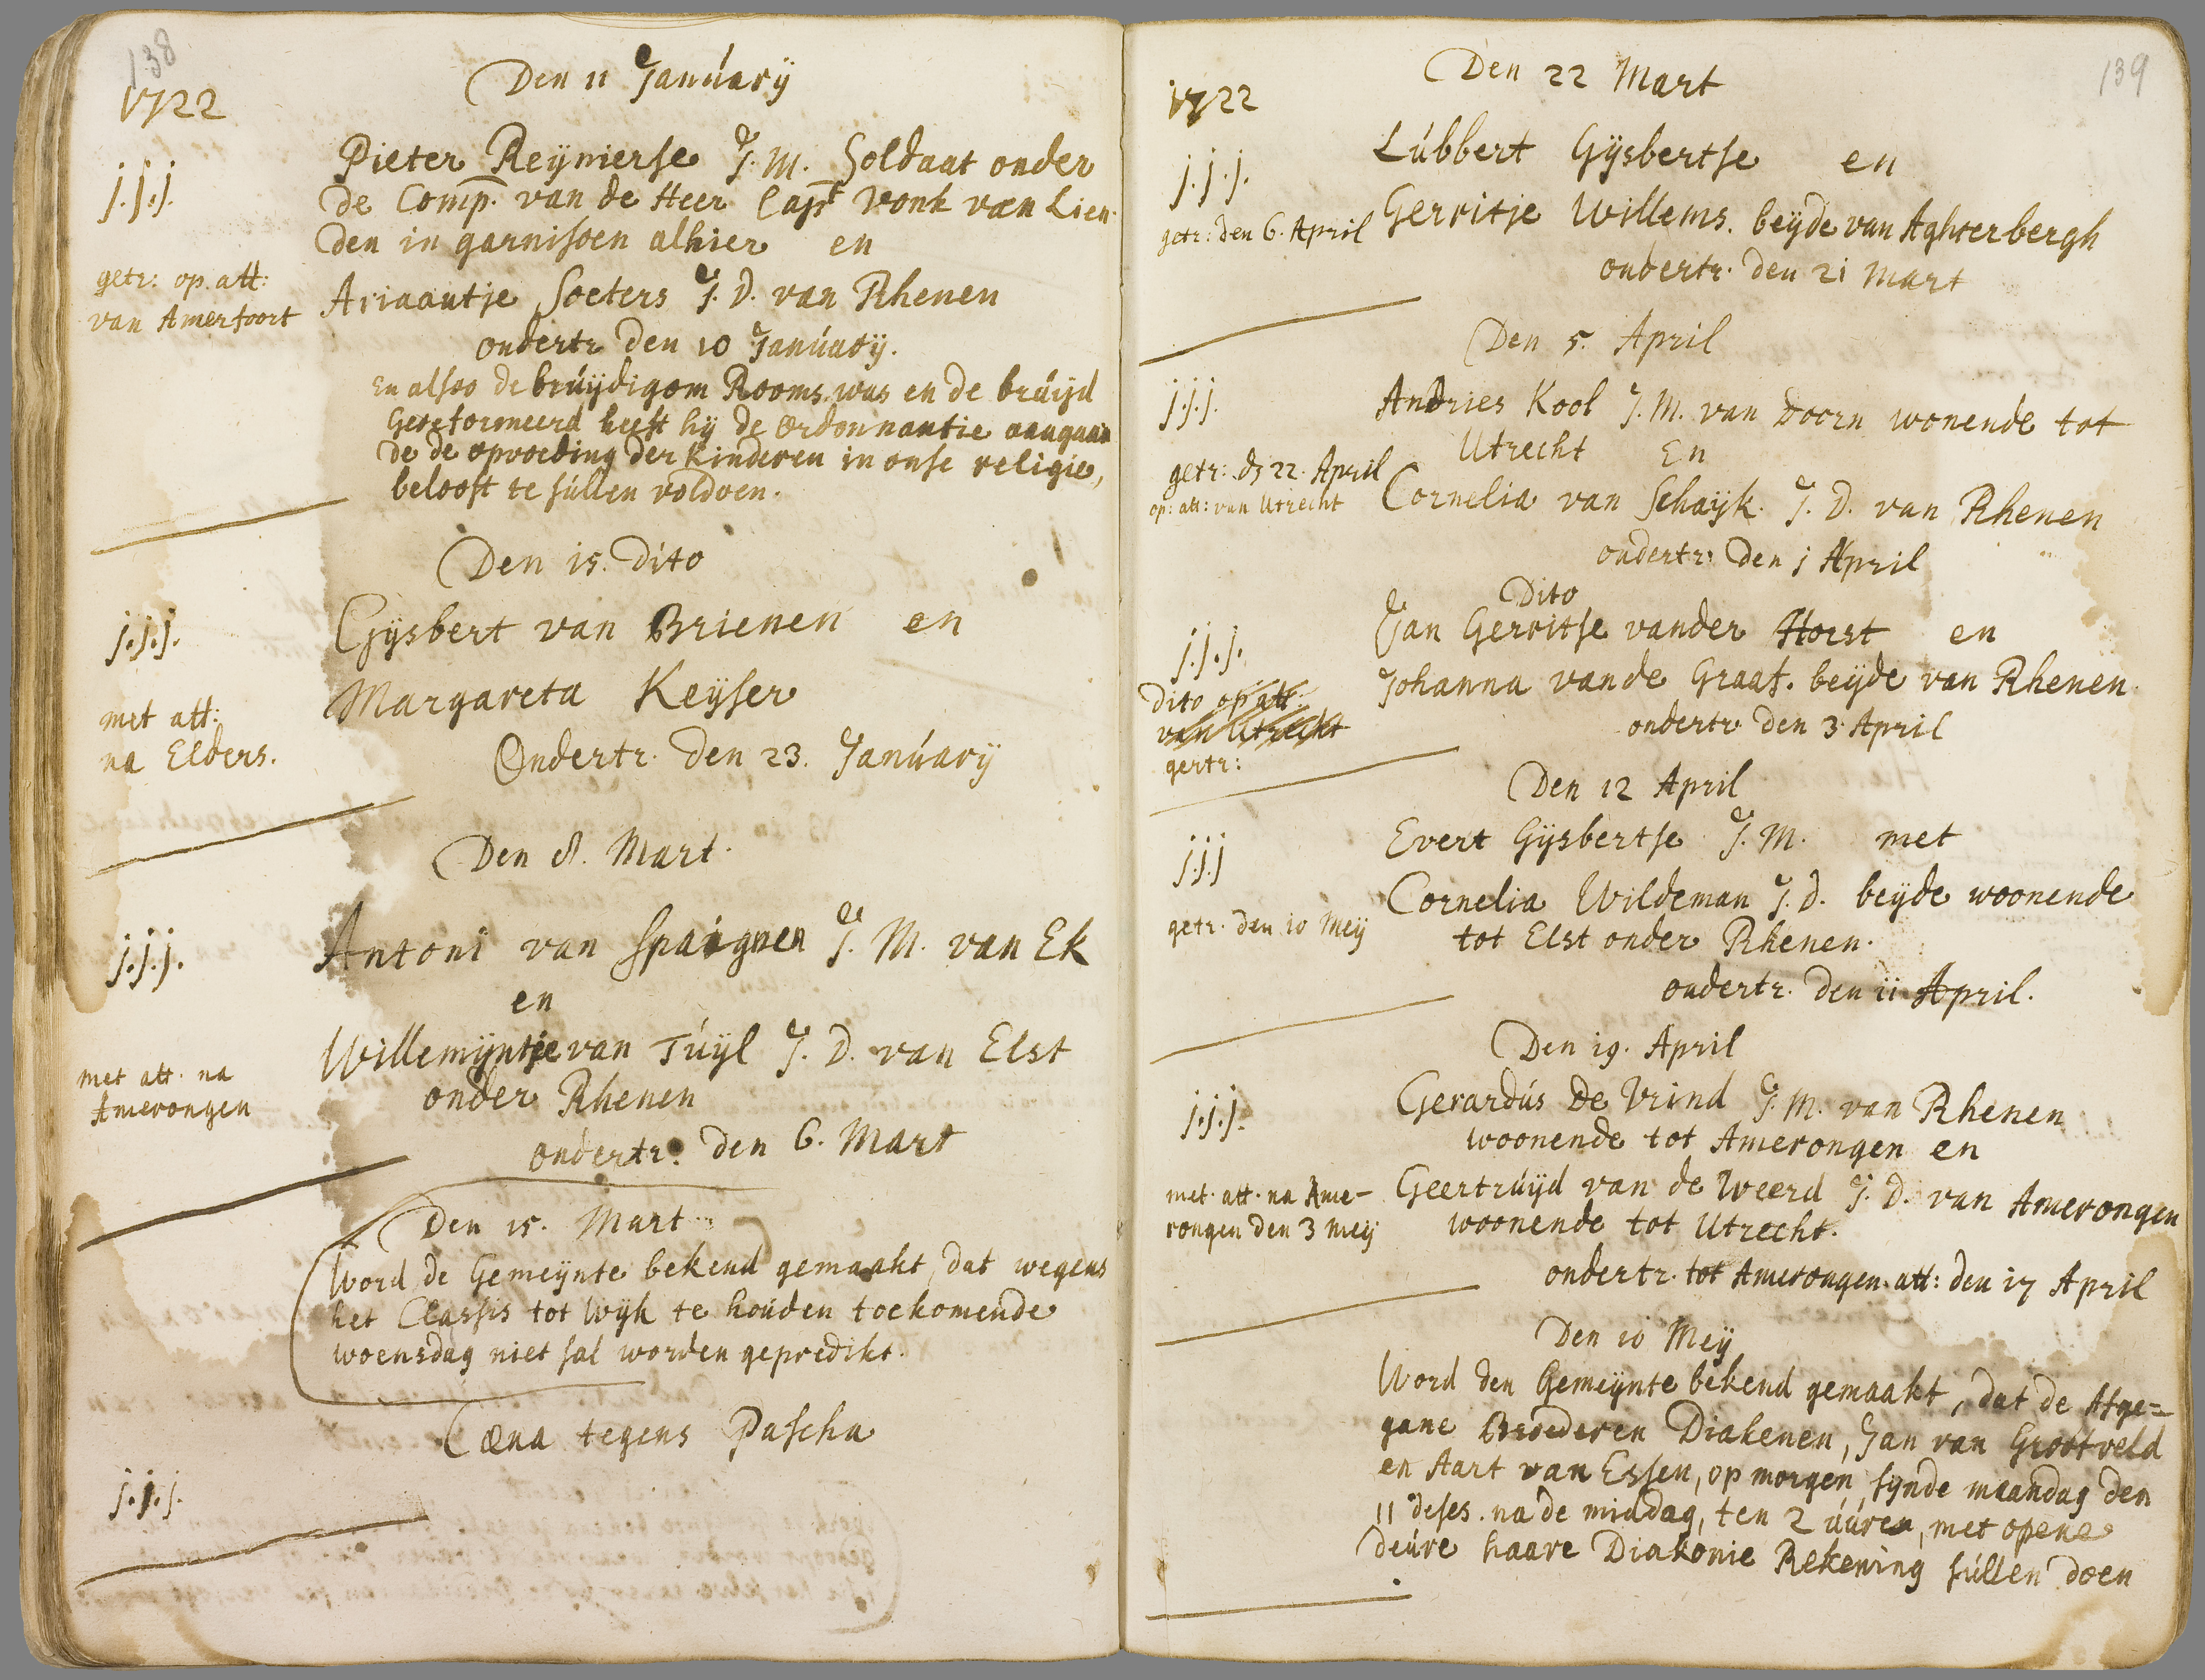 138
1722
Den 11 Januarÿ
j.j.j.
Pieter Reÿnierse J. M. Soldaat onder
de Comp. van de Heer Capt Vonk van Lien-
den in garnisoen alhier en
getr: op. att:
van Amerfoort
Ariaantje Soeters J. D. van Rhenen
ondertr den 10 Januarÿ.
En alsoo de bruÿdigom Rooms was en de bruijd
Gereformeerd heeft hÿ de ordonnantie aangaan
de de opvoeding der kinderen in onse religie,
belooft te sullen voldoen.
Den 15. Dito
j.j.j.
Gÿsbert van Brienen en
Margareta Keÿser
met att:
na Elders.
Ondertr. den 23. Januarÿ
Den 8. Mart.
j.j.j.
Antoni van Spaignen J. M. van Ek
en
Willemÿntje van Tuÿl J. D. van Elst
onder Rhenen
met att. na
Amerongen
ondertr. den 6. Mart
Den 15. Mart
Word de Gemeÿnte bekend gemaakt, dat wegens
het Classis tot Wÿk te houden toekomende
woensdag niet sal worden gepredikt.
Cæna tegens Pascha
j.j.j.
139
1722
Den 22 Mart
j.j.j.
Lubbert Gÿsbertse en
getr: den 6. April
Gerritje Willems. beÿde van Aghterbergh
ondertr. den 21 Mart
Den 5. April
j.j.j.
Andries Kool J. M. van Doorn wonende tot
Utrecht En
getr: ds 22. April
op: att: van Utrecht
Cornelia van Schaÿk. J. D. van Rhenen
ondertr: den 1 April
Dito
j.j.j.
Jan Gerritse vander Horst en
Johanna vande Graaf. beÿde van Rhenen.
dito op att:
van Utrecht
gertr:
ondertr den 3. April
Den 12 April
j.j.j
Evert Gÿsbertse J. M. met
Cornelia Wildeman J. D. beÿde woonende
tot Elst onder Rhenen.
getr. den 10 Meÿ
ondertr. den 11 April.
Den 19. April
j.j.j.
Gerardus de Vrind J. M. van Rhenen
woonende tot Amerongen en
Geertruÿd van de Weerd J. D. van Amerongen
woonende tot Utrecht.
met. att. na Ame-
rongen den 3 meÿ
ondertr. tot Amerongen. att: den 17 April
Den 10 Meÿ
Word den Gemeÿnte bekend gemaakt, dat de Afge=
gane Broederen Diakenen, Jan van Grootveld
en Aart van Essen, op morgen sÿnde maandag den
11 deses. na de middag, ten 2 uuren, met opene
deure haare Diakonie Rekening sullen doen